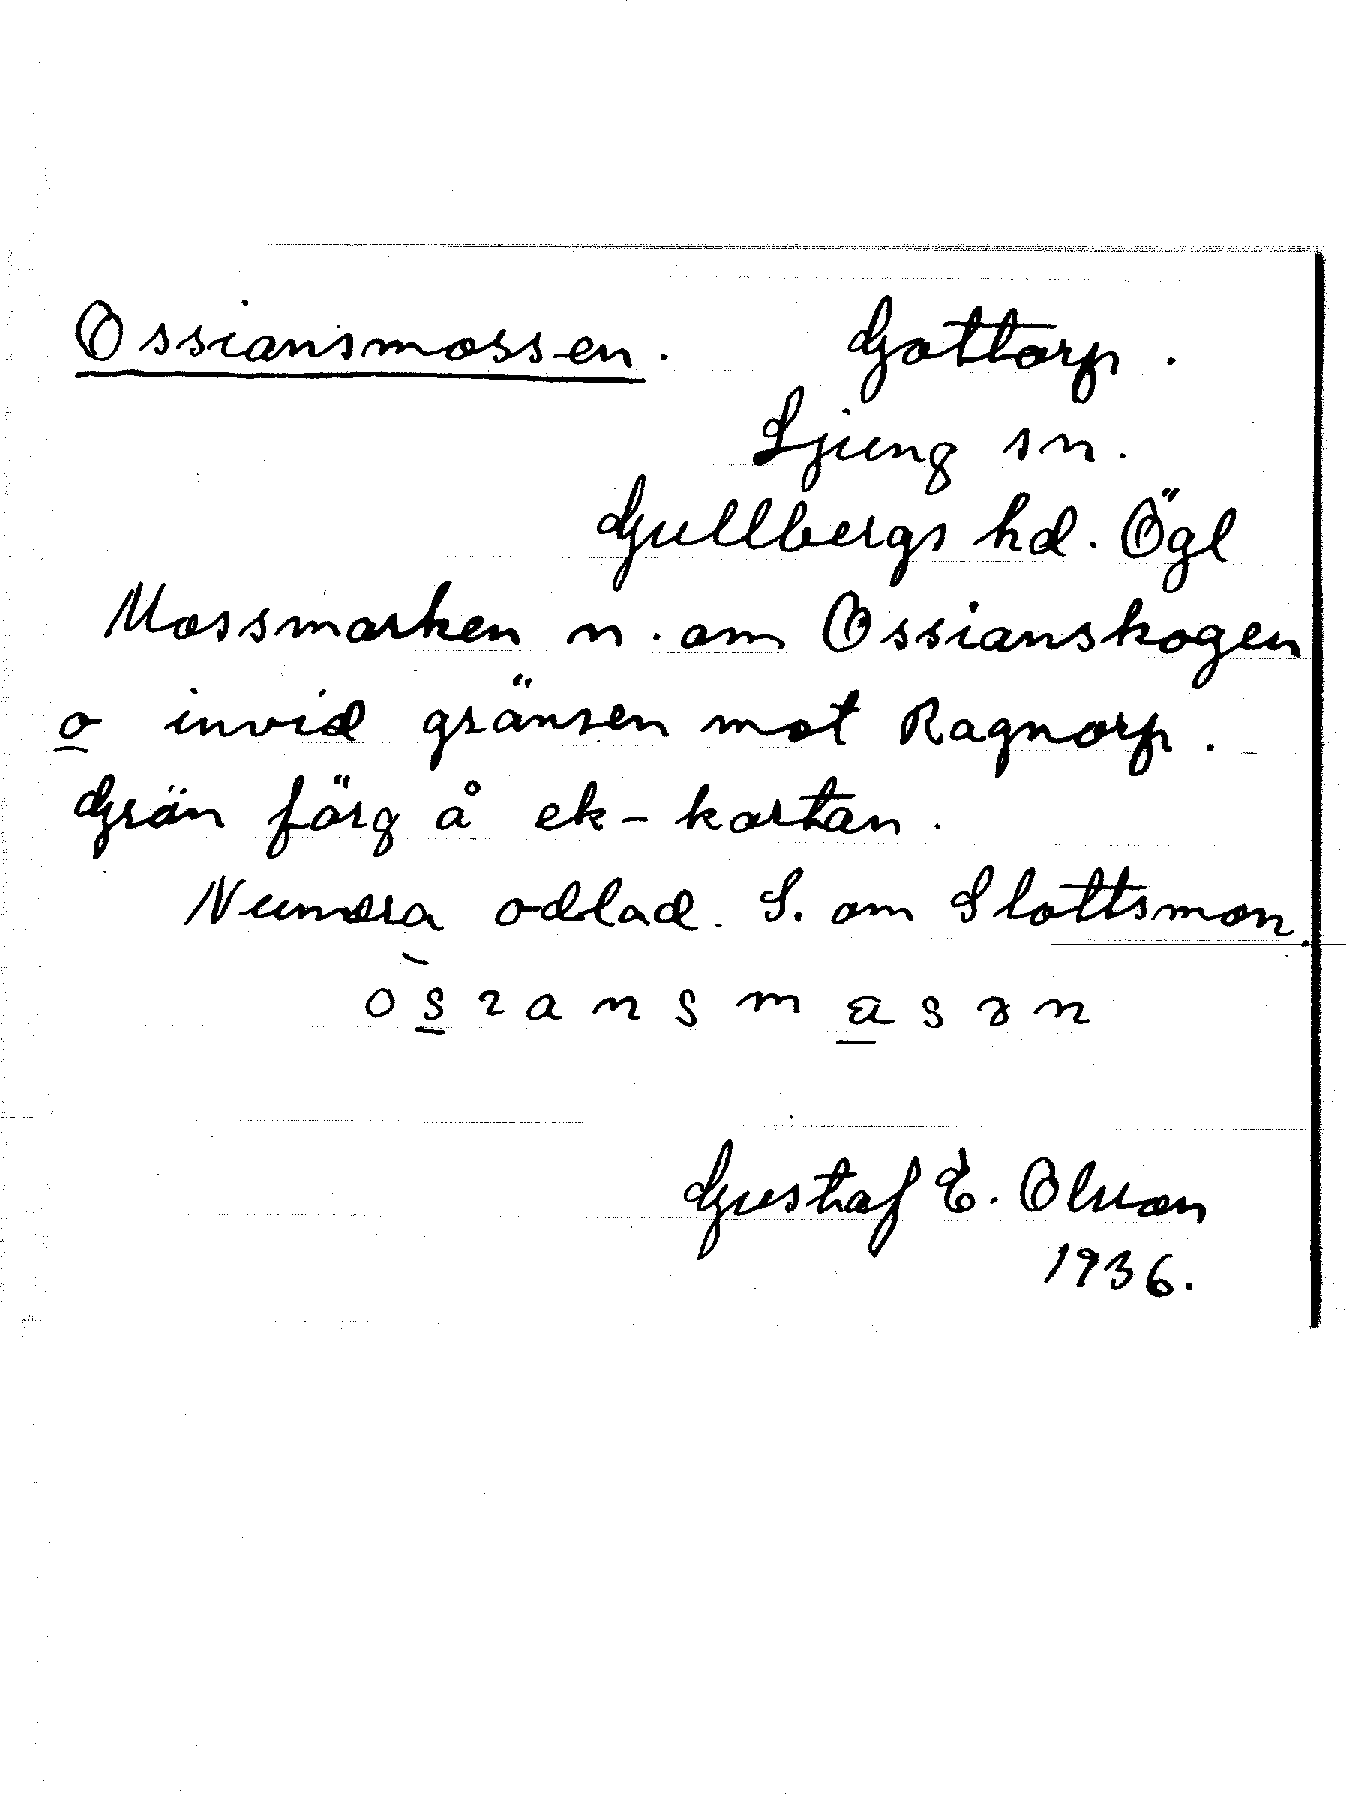 Ossiansmossen. Gottorp.
Ljung sn.
Gullbergs hd. Ögl
Mossmarken n. om Ossianskogen
o invid gränsen mot Ragnorp.
Grön färg å ek-kartan.
Numera odlad. S. om Slottsmon.
Gustaf E. Olson
1936.